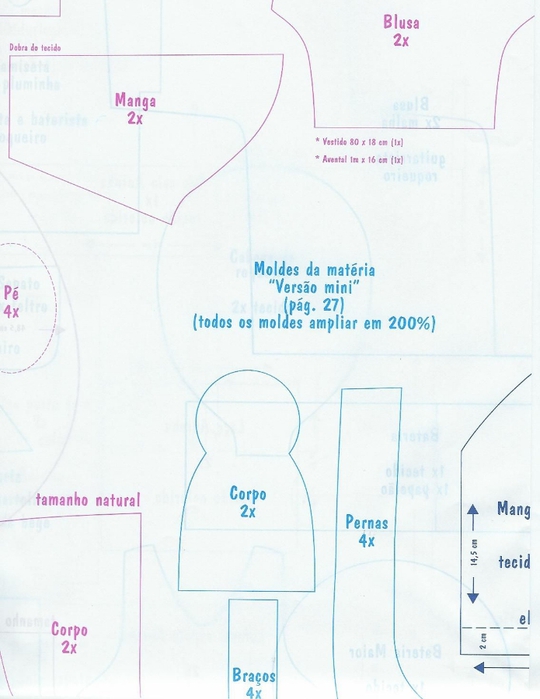 Blusa
2x
Dobra do tecido
Manga
2x
* Vestido 80 x 18 cm (1x)
* Avental 1m x 16 cm (1x)
Pé
4x
Moldes da matéria
“Versão mini”
(pág. 27)
(todos os moldes ampliar em 200%)
tamanho natural
Corpo
2x
Pernas
4x
Mang
14,5 cm
tecid
el
2 cm
Corpo
2x
Braços
4x